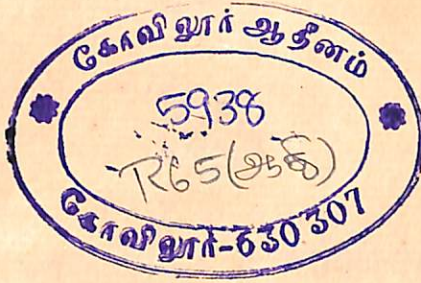 கோவிலூர் ஆதீனம்
5938
R65(ஆகி)
கோவிலூர்-630 307